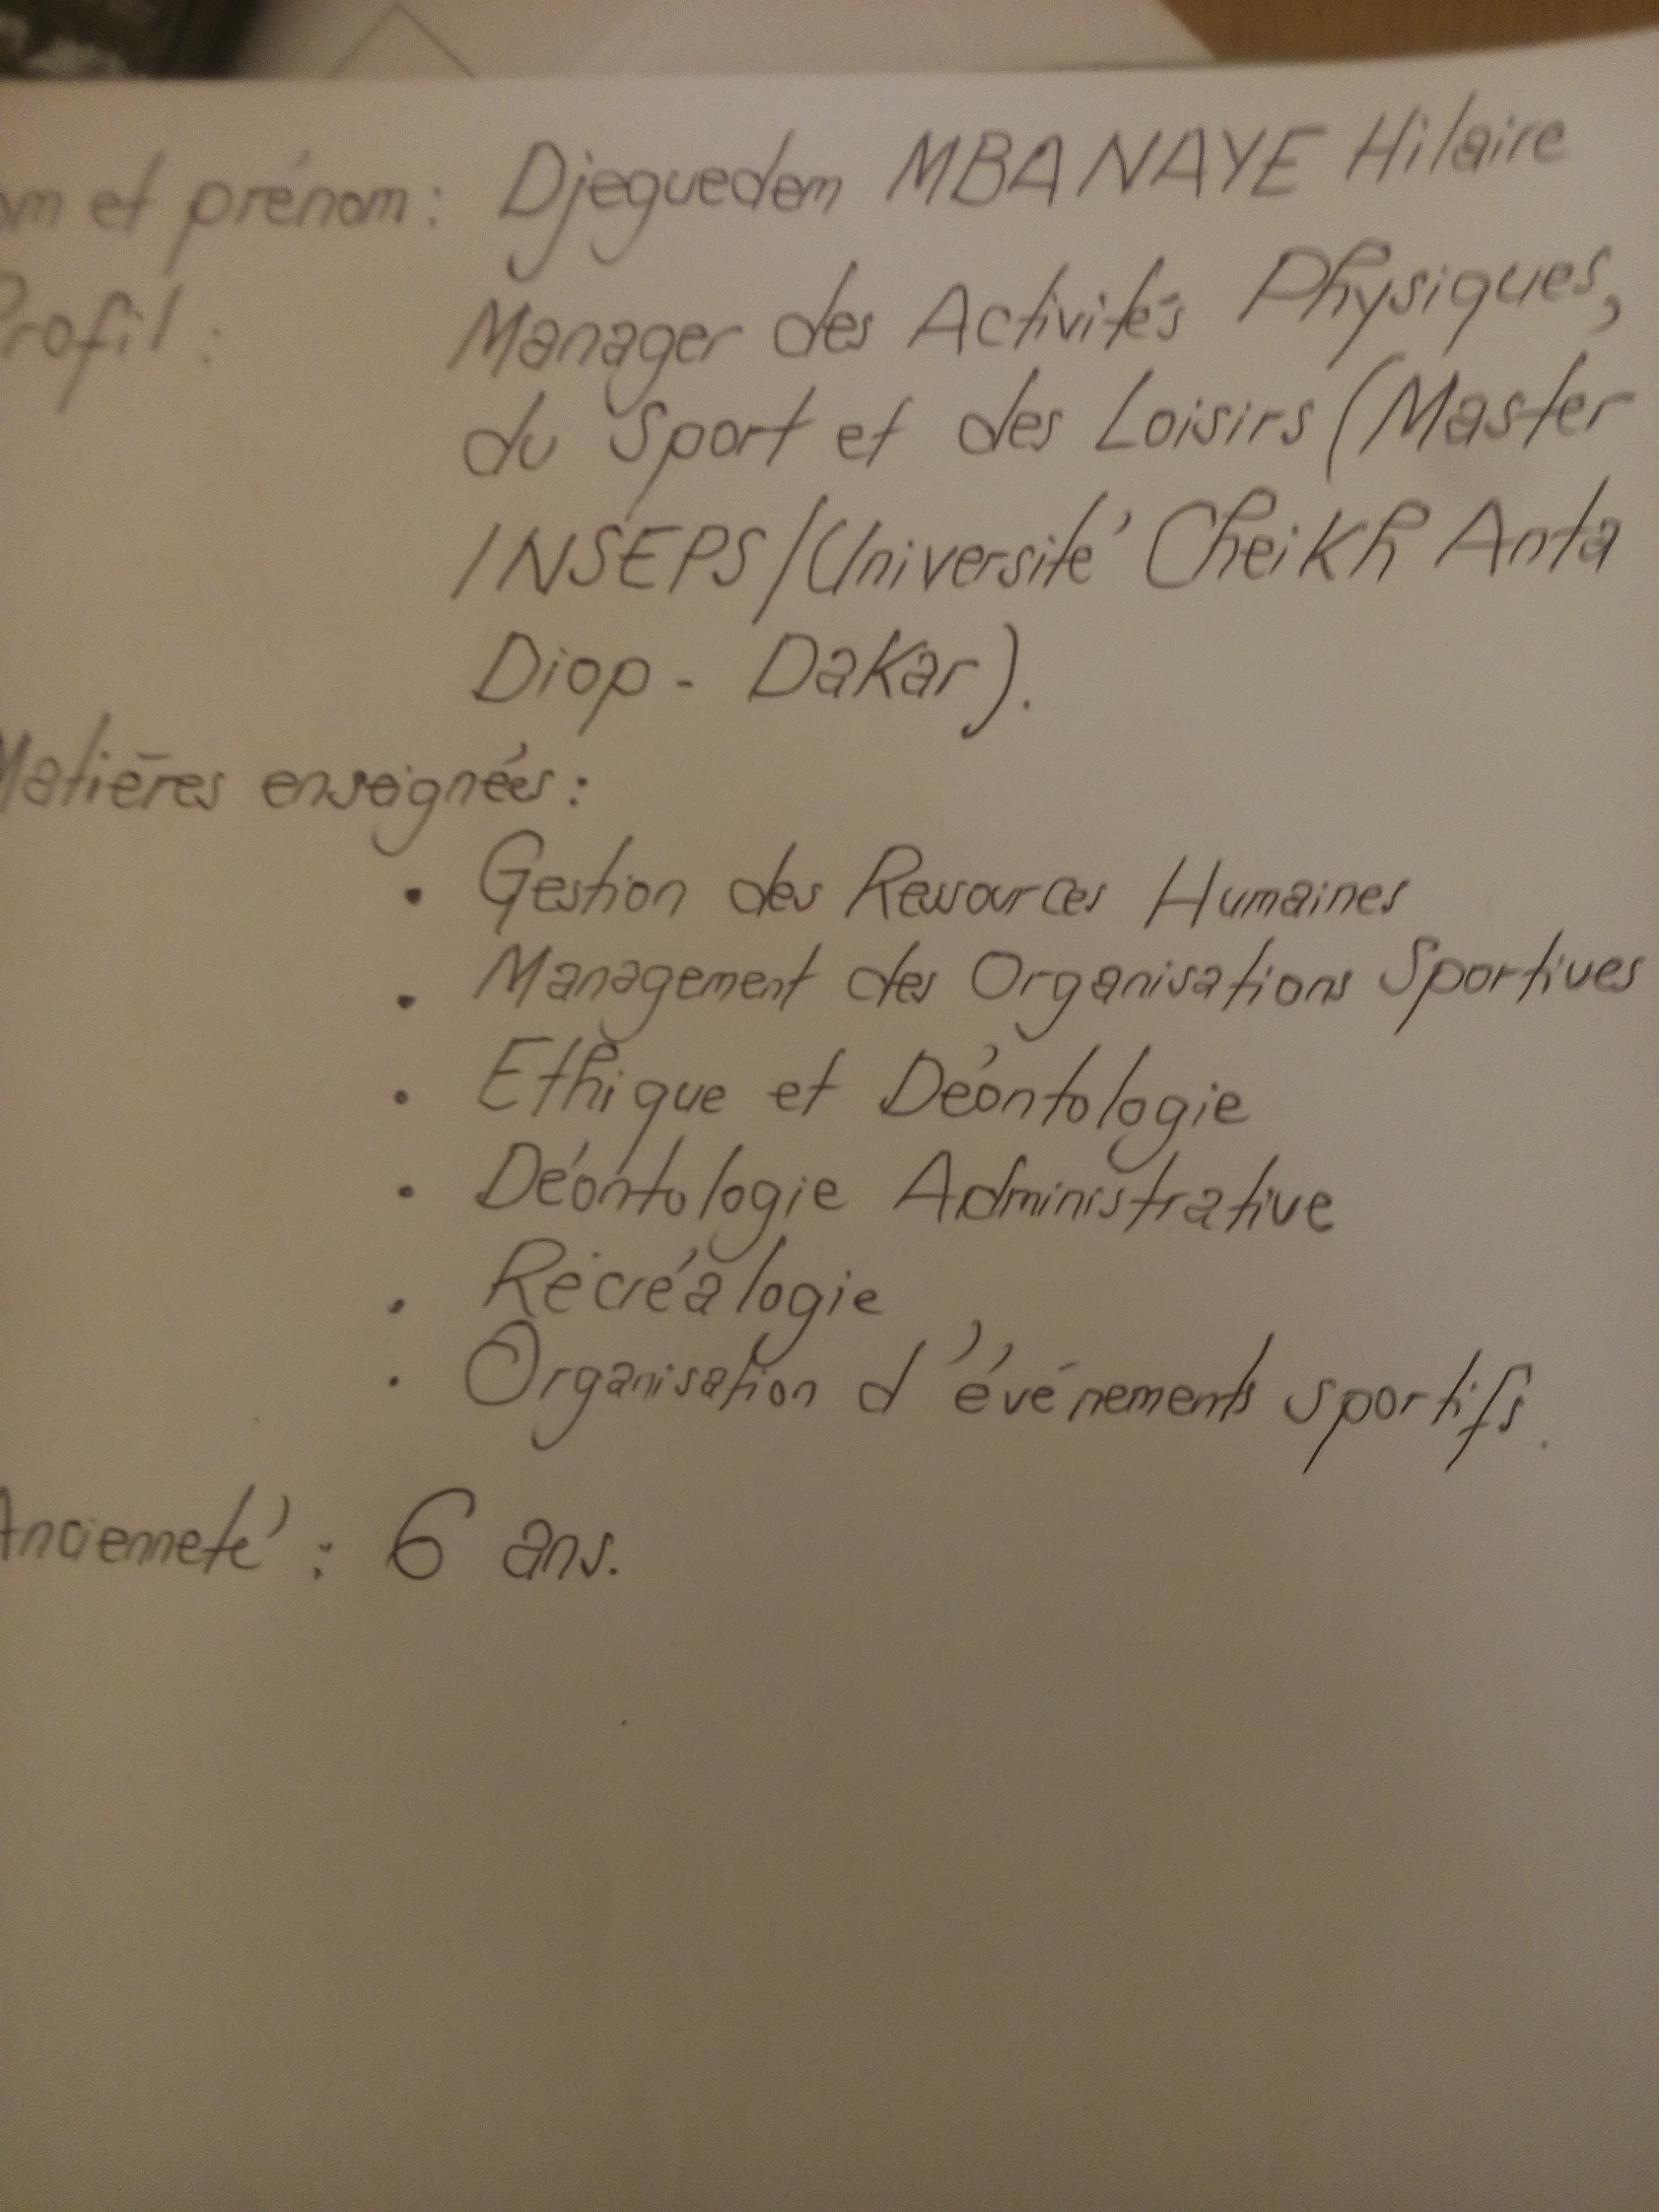 om et prénom : Djeguedem MBANAYE Hilaire
Profil : Manager des Activités Physiques,
du Sport et des Loisirs (Master
INSEPS/Université Cheikh Anta
Diop - Dakar).
Matières enseignées :
• Gestion des Ressources Humaines
• Management des Organisations Sportives
• Ethique et Déontologie
• Déontologie Administrative
• Récréalogie
• Organisation d'événements sportifs.
Ancienneté : 6 ans.